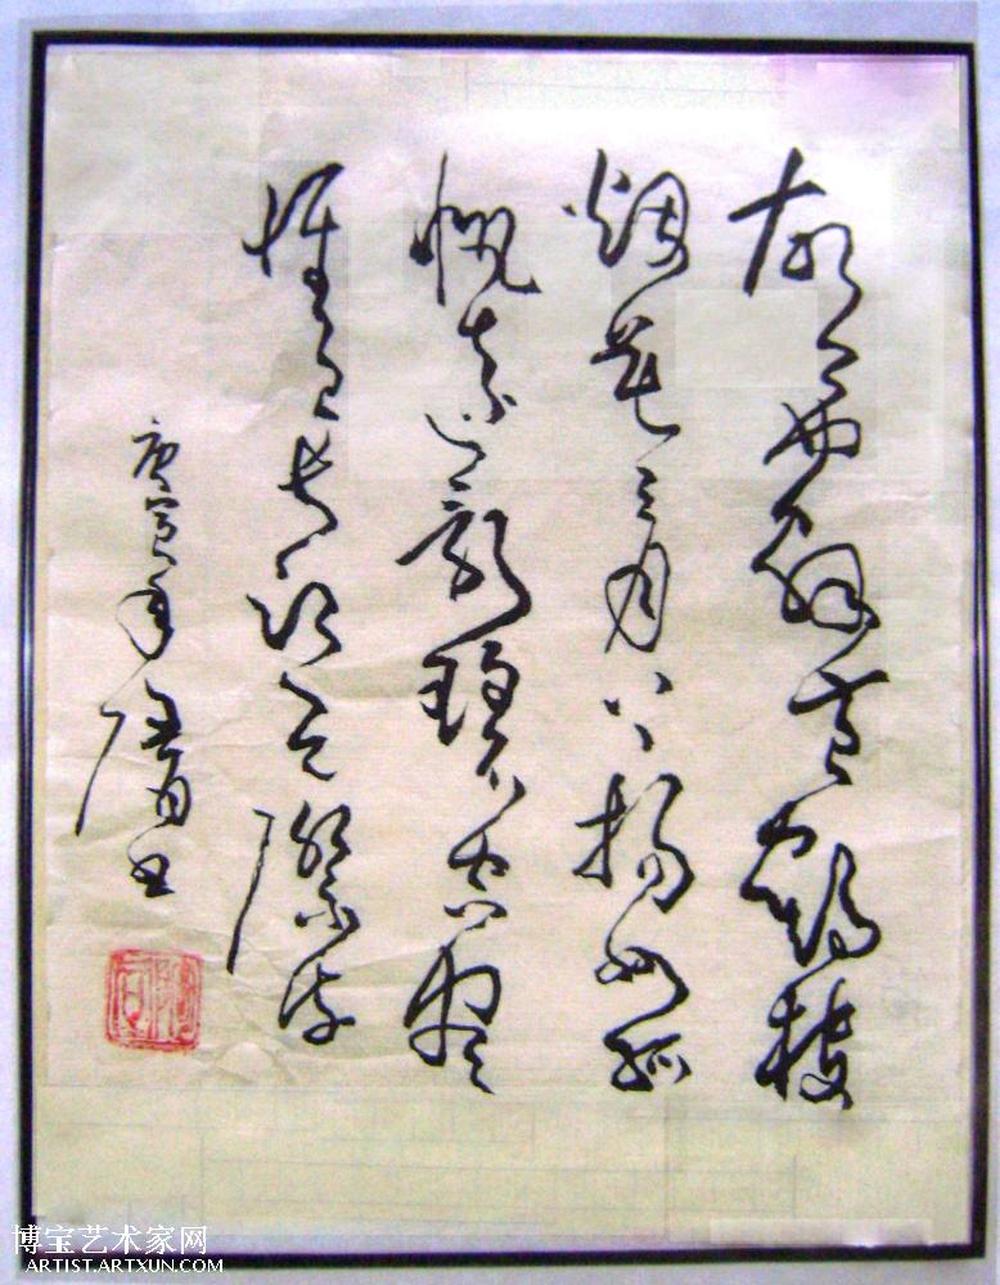 故人西辞黄鹤楼
烟花三月下扬州孤
帆远影碧空尽
惟见长江天际流
庚寅年 书
博宝艺术家网
ARTIST.ARTXUN.COM